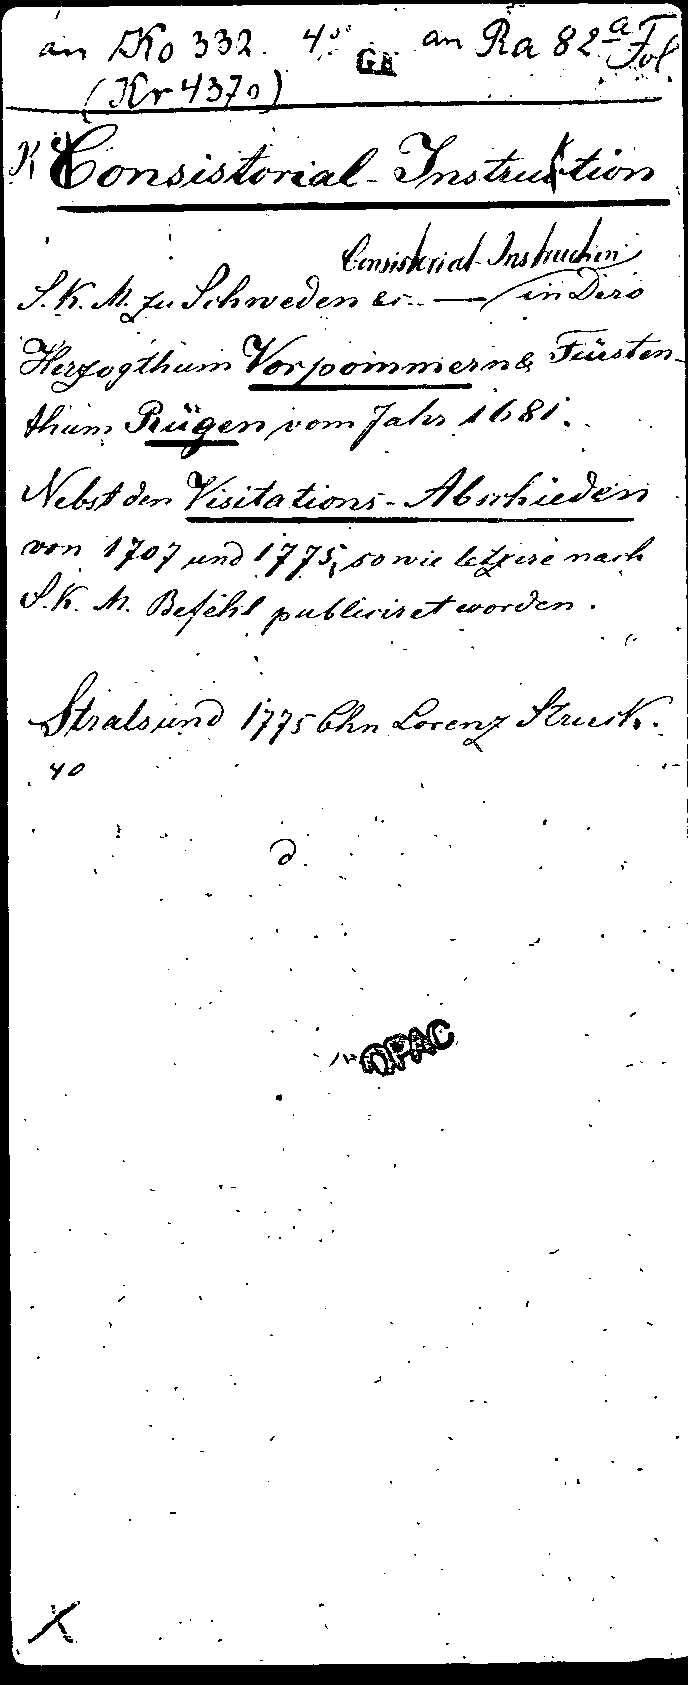 an Ko 332. 4° GK an Ra 82a Fol.
(Kr 4370)
K Consistorial-Instruktion
Consistorial-Instruction
S. K. M. zu Schweden &c. — in Dero
Herzogthum Vorpommern & Fürsten-
thum Rügen vom Jahr 1681.
Nebst den Visitations-Abschieden
von 1707 und 1775, sowie letztere nach
S. K. M. Befehl publiciret worden.
Stralsund 1775 Chn Lorenz Struck.
4o
d
OPAC
X